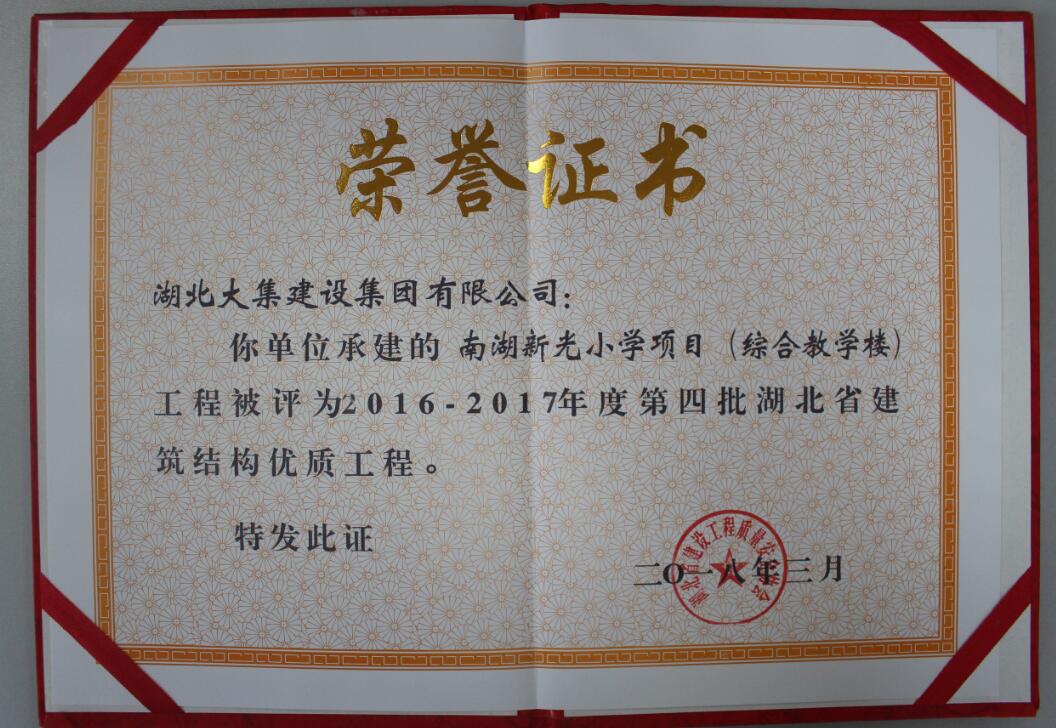 荣誉证书
湖北大集建设集团有限公司：
你单位承建的 南湖新光小学项目（综合教学楼）
工程被评为2016-2017年度第四批湖北省建
筑结构优质工程。
特发此证
湖北省建设工程质量安全协会
二〇一八年三月